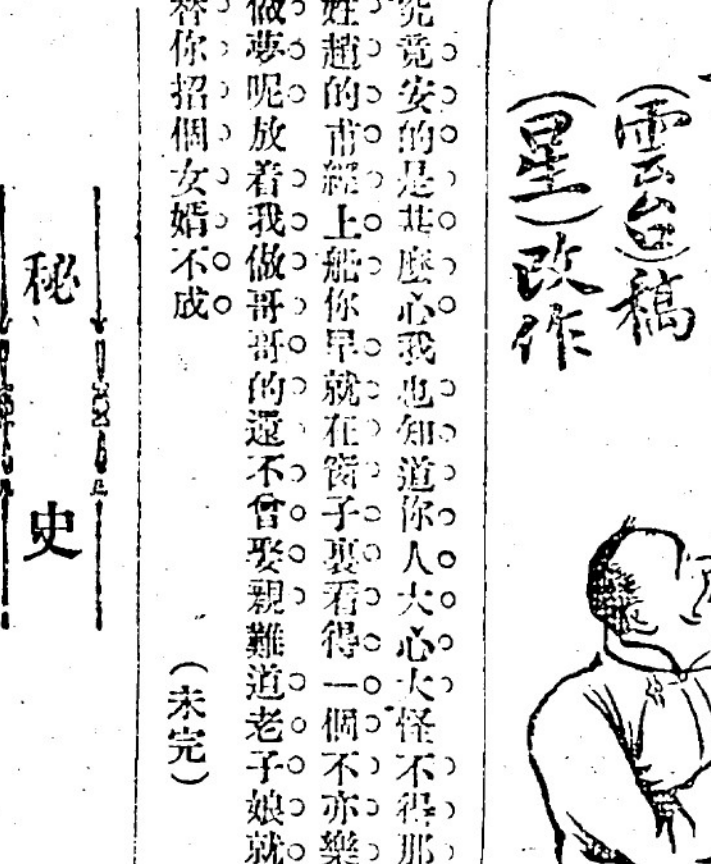 （雲台）稿
（星）改作
究竟安的是甚麼心我也知道你人大心大怪不得那
姓趙的甫經上船你早就在窗子裏看得一個不亦樂
做夢呢放着我做哥哥的還不曾娶親難道老子娘就
替你招個女婿不成
（未完）
秘史